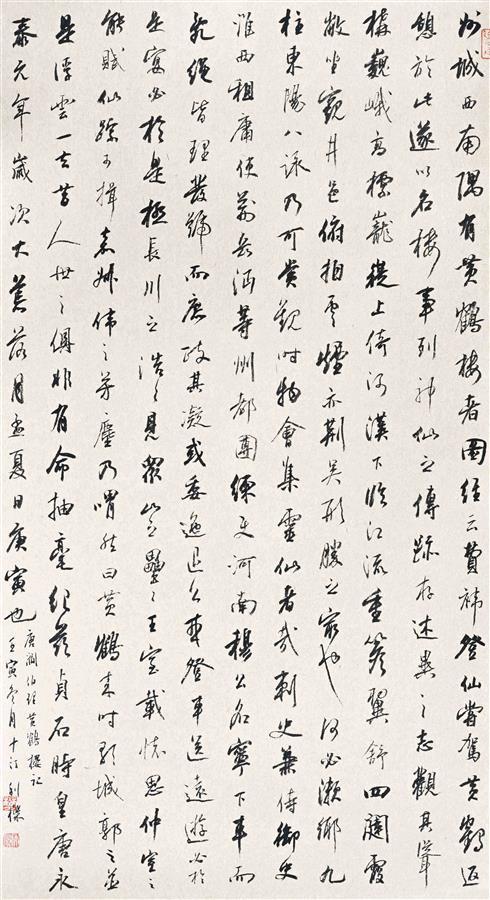 州城西南隅有黄鶴樓者圖经云費禕登仙嘗駕黄鶴返
憩於此遂以名樓事列神仙之傳跡存述異之志觀其聳
構巍峨高標巃嵷上倚河漢下临江流重簷翼舒四闥霞
敞坐窺井邑俯拍雲煙亦荆吴形勝之最也何必瀨鄉九
柱東陽八詠乃可賞觀时物會集靈仙者哉刺史兼侍御史
淮西租庸使荆岳沔等州都團練使河南穆公名寧下車而
亂繩皆理發號而庶政其凝或委迤退公登車送遠遊必於
是宴必於是極長川之浩々見衆山之壘々王室載懷思仲宣之
能賦仙踪可揖嘉叔偉之芳塵乃喟然曰黄鶴来时歌城郭之並
是浮雲一去昔人世之俱非有命抽毫纪兹貞石時皇唐永
泰元年歲次大荒落月孟夏日庚寅也
唐閻伯理黄鶴樓記
壬寅冬月